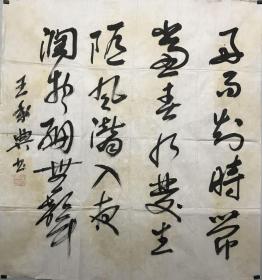 好雨知時節
當春乃發生
随風潛入夜
潤物細無聲
王 书